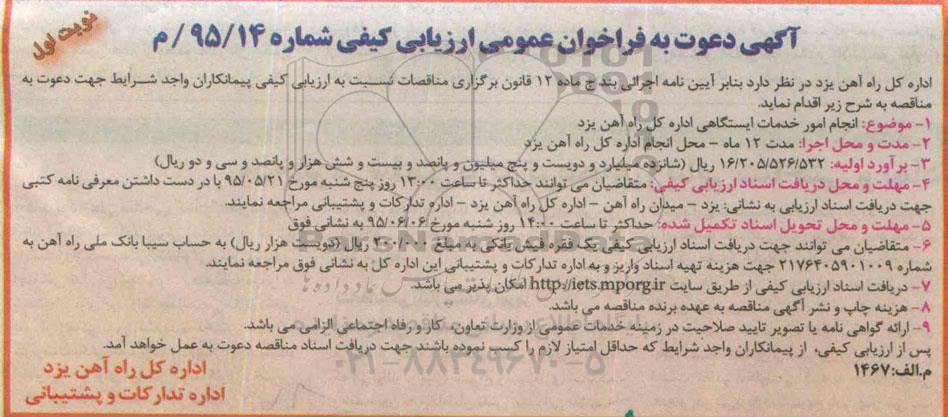 نوبت اول
آگهی دعوت به فراخوان عمومی ارزیابی کیفی شماره ۹۵/۱۴/م
اداره کل راه آهن یزد در نظر دارد بنابر آیین نامه اجرائی بند ج ماده ۱۲ قانون برگزاری مناقصات نسبت به ارزیابی کیفی پیمانکاران واجد شرایط جهت دعوت به
مناقصه به شرح زیر اقدام نماید.
۱- موضوع: انجام امور خدمات ایستگاهی اداره کل راه آهن یزد
۲- مدت و محل اجرا: مدت ۱۲ ماه - محل انجام اداره کل راه آهن یزد
۳- برآورد اولیه: ۱۶/۲۰۵/۵۲۶/۵۳۲ ریال (شانزده میلیارد و دویست و پنج میلیون و پانصد و بیست و شش هزار و پانصد و سی و دو ریال)
۴- مهلت و محل دریافت اسناد ارزیابی کیفی: متقاضیان می توانند حداکثر تا ساعت ۱۳:۰۰ روز پنج شنبه مورخ ۹۵/۰۵/۲۱ با در دست داشتن معرفی نامه کتبی
جهت دریافت اسناد ارزیابی به نشانی: یزد - میدان راه آهن - اداره کل راه آهن یزد - اداره تدارکات و پشتیبانی مراجعه نمایند.
۵- مهلت و محل تحویل اسناد تکمیل شده: حداکثر تا ساعت ۱۴:۰۰ روز شنبه مورخ ۹۵/۰۶/۰۶ به نشانی فوق
۶- متقاضیان می توانند جهت دریافت اسناد ارزیابی کیفی یک فقره فیش بانکی به مبلغ ۲۰۰/۰۰۰ ریال (دویست هزار ریال) به حساب سیبا بانک ملی راه آهن به
شماره ۲۱۷۶۴۰۵۹۰۱۰۰۹ جهت هزینه تهیه اسناد واریز و به اداره تدارکات و پشتیبانی این اداره کل به نشانی فوق مراجعه نمایند.
۷- دریافت اسناد ارزیابی کیفی از طریق سایت http://iets.mporg.ir امکان پذیر می باشد.
۸- هزینه چاپ و نشر آگهی مناقصه به عهده برنده مناقصه می باشد.
۹- ارائه گواهی نامه یا تصویر تایید صلاحیت در زمینه خدمات عمومی از وزارت تعاون، کار و رفاه اجتماعی الزامی می باشد.
پس از ارزیابی کیفی، از پیمانکاران واجد شرایط که حداقل امتیاز لازم را کسب نموده باشند جهت دریافت اسناد مناقصه دعوت به عمل خواهد آمد.
م.الف: ۱۴۶۷
اداره کل راه آهن یزد
اداره تدارکات و پشتیبانی
۰۲۱-۸۸۳۴۹۶۷۰-۵